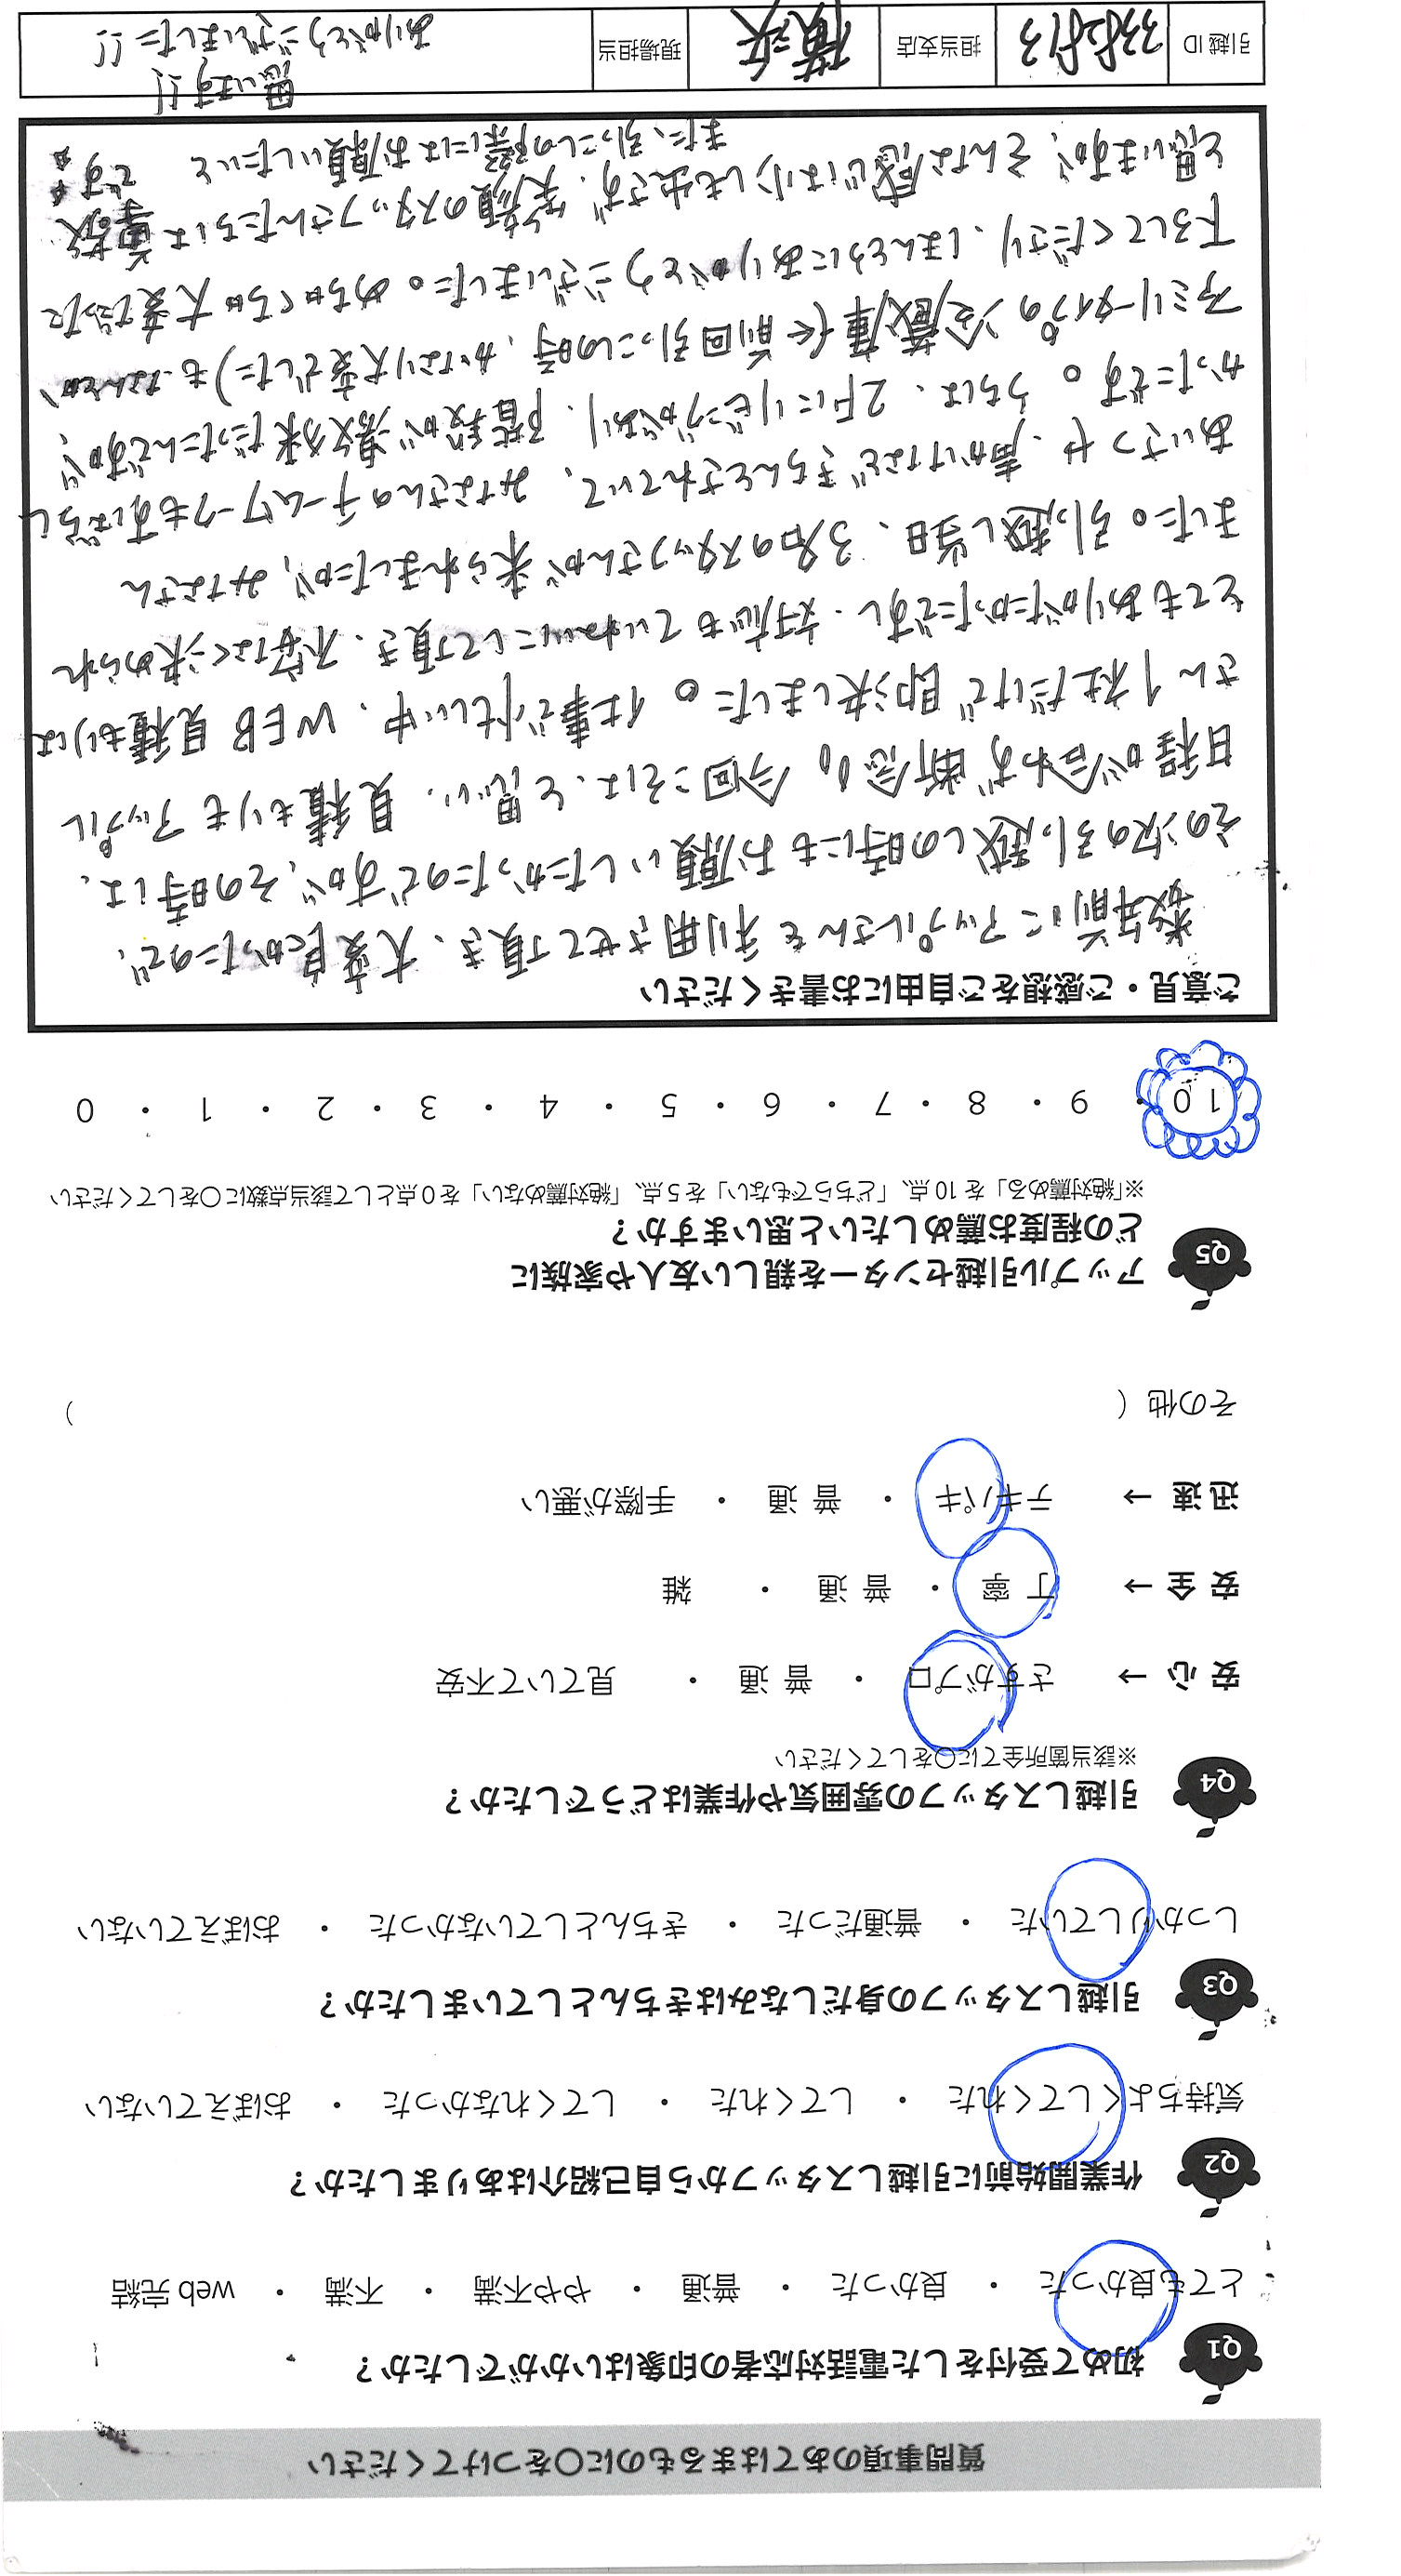 質問事項のあてはまるものに○をつけてください
Q1 初めて受付をした電話対応者の印象はいかがでしたか？
とても良かった ・ 良かった ・ 普通 ・ やや不満 ・ 不満 ・ web 完結
Q2 作業開始前に引越しスタッフから自己紹介はありましたか？
気持ちよくしてくれた ・ してくれた ・ してくれなかった ・ おぼえていない
Q3 引越しスタッフの身だしなみはきちんとしていましたか？
しっかりしていた ・ 普通だった ・ きちんとしていなかった ・ おぼえていない
Q4 引越しスタッフの雰囲気や作業はどうでしたか？
※該当箇所全てに○をしてください
安 心 → さすがプロ ・ 普 通 ・ 見ていて不安
安 全 → 丁 寧 ・ 普 通 ・ 雑
迅 速 → テキパキ ・ 普 通 ・ 手際が悪い
その他（ ）
Q5 アップル引越センターを親しい友人や家族に
どの程度お薦めしたいと思いますか？
※「絶対薦める」を 10 点、「どちらでもない」を 5 点、「絶対薦めない」を 0 点として該当点数に○をしてください
10 ・ 9 ・ 8 ・ 7 ・ 6 ・ 5 ・ 4 ・ 3 ・ 2 ・ 1 ・ 0
ご意見・ご感想をご自由にお書きください
数年前にアップルさんを利用させて頂き、大変良かったので、
その次の引っ越しの時にもお願いしたかったのですが、その時は、
日程が合わず断念。今回こそは、と思い、見積もりもアップル
さん1社だけで即決しました。仕事で忙しい中、WEB見積もりは
とてもありがたかったですし、対応もていねいにして頂き、不安なく決められ
ました。引っ越し当日、3名のスタッフさんが来られましたが、みなさん
あいさつや、声かけなどきちんとされていて、みなさんのチームワークもすばらし
かったです。うちは、2Fにリビングがあり、階段が螺旋だったんですが、
ファミリータイプの冷蔵庫(前回引っこの時、かなり大変でした)もなんとか
下ろしてくださり、ほんとうにありがとうございました。めちゃくちゃ大変だったと
思いますが、そんな感じは少しも出さず、笑顔のスタッフさんたちは尊敬です
また、引っこしの際にはお願いしたいと
思います!!
ありがとうございました!!
引越 ID 3382813 担当支店 横浜 現場担当